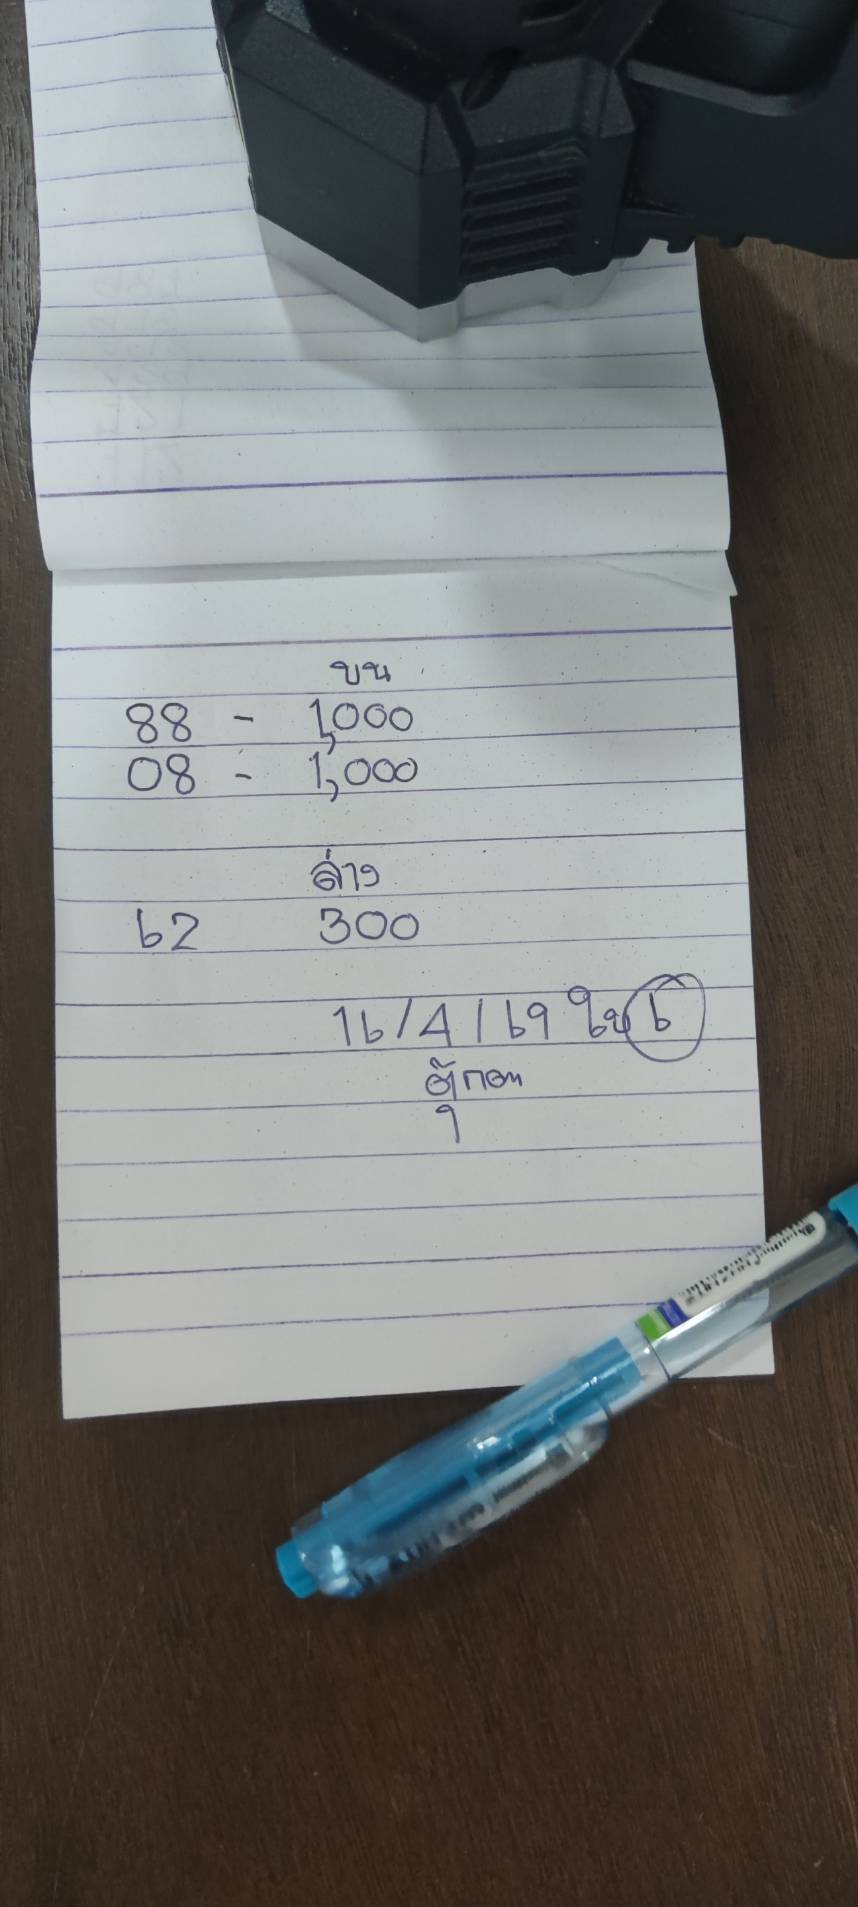 บน
88 - 1,000
08 - 1,000
ล่าง
62 300
16/4/69 ใบ 6